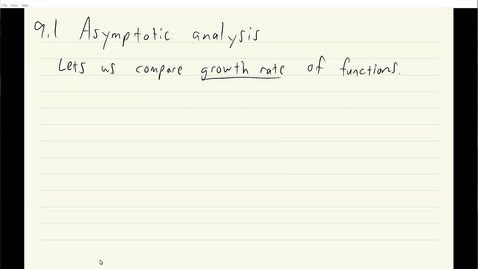 9.1 Asymptotic analysis
Lets us compare growth rate of functions.